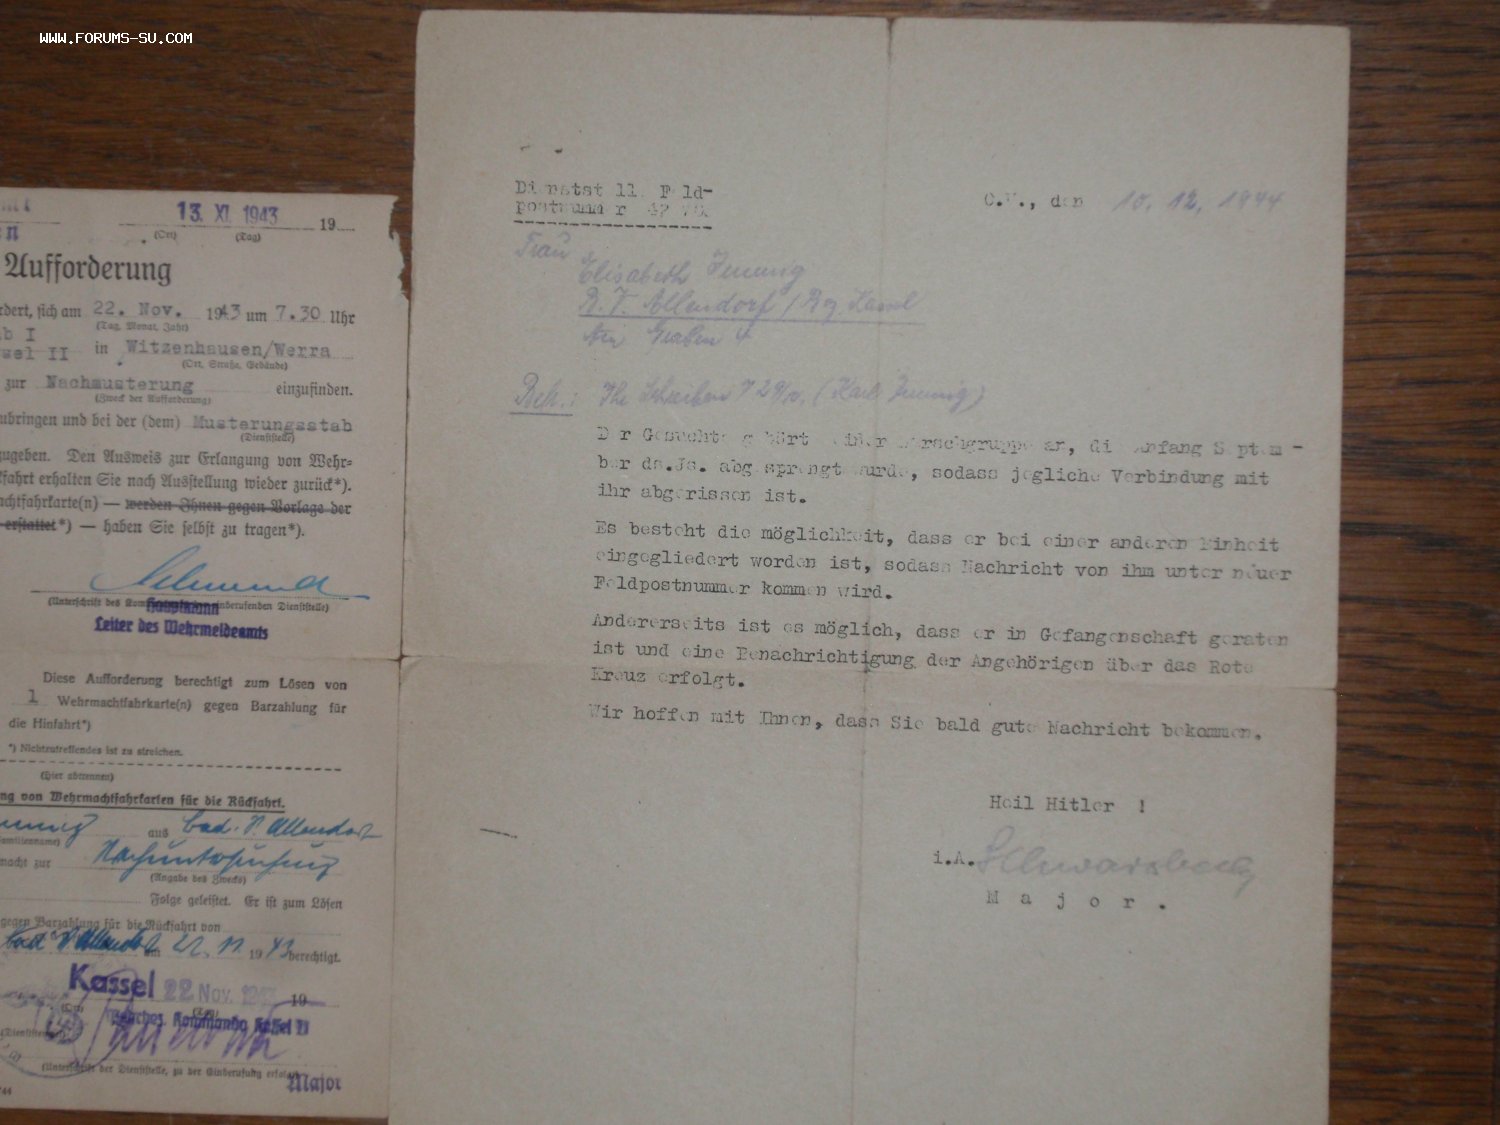 WWW.FORUMS-SU.COM
13. XI. 1943 19
(Ort) (Tag)
Aufforderung
rdert, sich am 22. Nov. 1943 um 7.30 Uhr
(Tag, Monat, Jahr)
b I
sel II in Witzenhausen/Werra
(Ort, Straße, Gebäude)
zur Nachmusterung einzufinden.
(Zweck der Aufforderung)
ubringen und bei der (dem) Musterungsstab
(Dienststelle)
zugeben. Den Ausweis zur Erlangung von Wehr-
fahrt erhalten Sie nach Ausstellung wieder zurück*).
achtfahrkarte(n) — werden Ihnen gegen Vorlage der
erstattet*) — haben Sie selbst zu tragen*).
(Unterschrift des einberufenden Dienststelle)
Hauptmann
Leiter des Wehrmeldeamts
Diese Aufforderung berechtigt zum Lösen von
1 Wehrmachtfahrkarte(n) gegen Barzahlung für
die Hinfahrt*)
*) Nichtzutreffendes ist zu streichen.
(Hier abtrennen)
ng von Wehrmachtfahrkarten für die Rückfahrt.
aus Bad. S. Allendorf
amilienname)
macht zur Nachuntersuchung
(Angabe des Zwecks)
Folge geleistet. Er ist zum Lösen
gegen Barzahlung für die Rückfahrt von
Bad S. Allendorf am 22. 11 1943 berechtigt.
Kassel 22 Nov. 19
Kommando Kassel II
(Unterschrift der Dienststelle, zu der Einberufung erfolgt)
Major
Dienststelle Feld-
postnummer
O.U., den 10. 12. 1944
Frau
Elisabeth Jennig
B. S. Allendorf / Bz Kassel
Am Graben 4
Betr.: Ihr Schreiben v 29/10. (Karl Jennig)
Der Gesuchte gehört einer Marschgruppe an, die Anfang Septem-
ber ds.Js. abgesprengt wurde, sodass jegliche Verbindung mit
ihr abgerissen ist.
Es besteht die möglichkeit, dass er bei einer anderen Einheit
eingegliedert worden ist, sodass Nachricht von ihm unter neuer
Feldpostnummer kommen wird.
Andererseits ist es möglich, dass er in Gefangenschaft geraten
ist und eine Benachrichtigung der Angehörigen über das Rote
Kreuz erfolgt.
Wir hoffen mit Ihnen, dass Sie bald gute Nachricht bekommen.
Heil Hitler !
i.A. Schwarzbeck
Major.